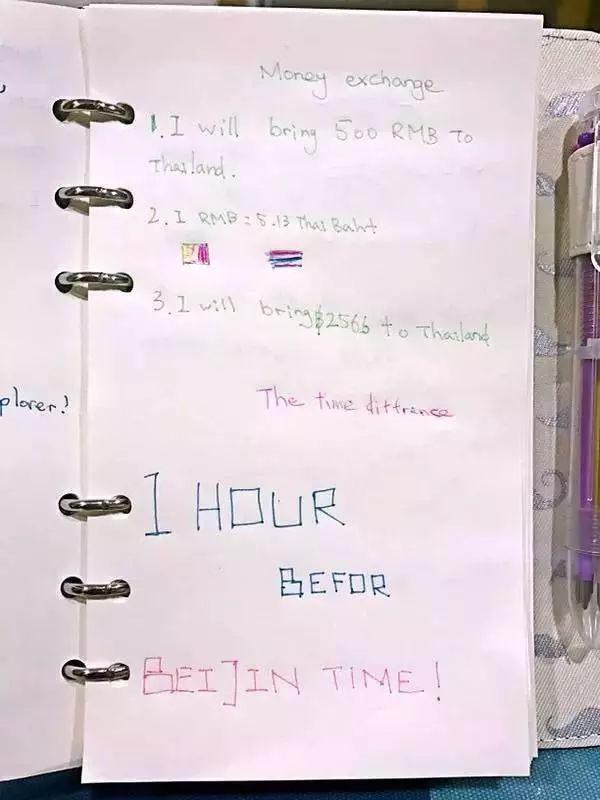 Money exchange
1. I will bring 500 RMB To
Thailand.
2. I RMB = 5.13 Thai Baht
3. I will bring ฿2566 to Thailand
plorer!
The time diffrence
1 HOUR
BEFOR
BEIJIN TIME!